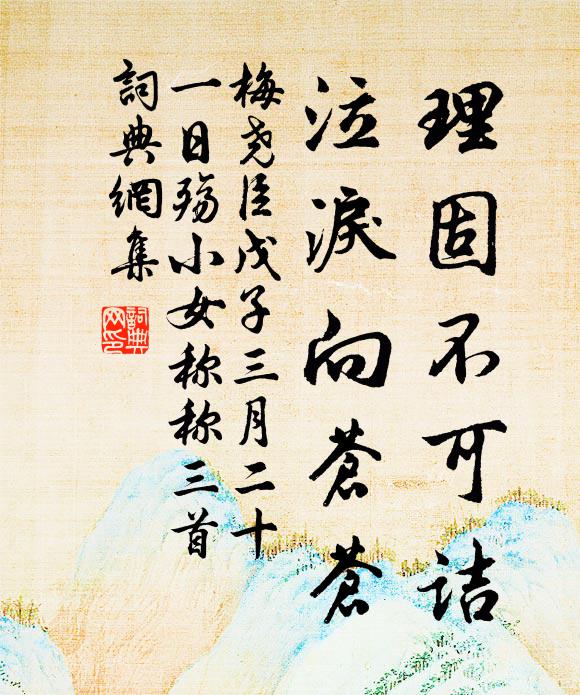 理固不可詰
泣淚向蒼蒼
梅堯臣戊子三月二十
一日殤小女称称三首
詞典網集
詞典
网印